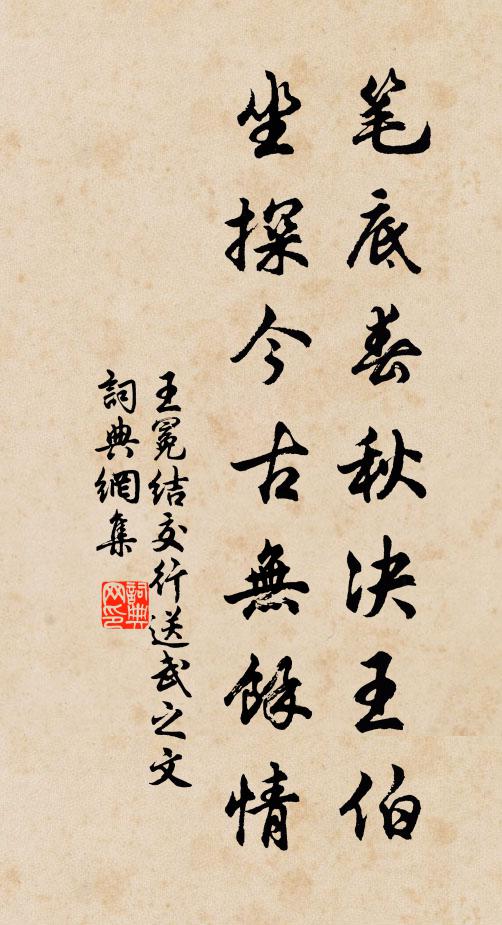 笔底春秋决王伯
坐探今古無餘情
王冕结交行送武之文
詞典網集
詞典网印